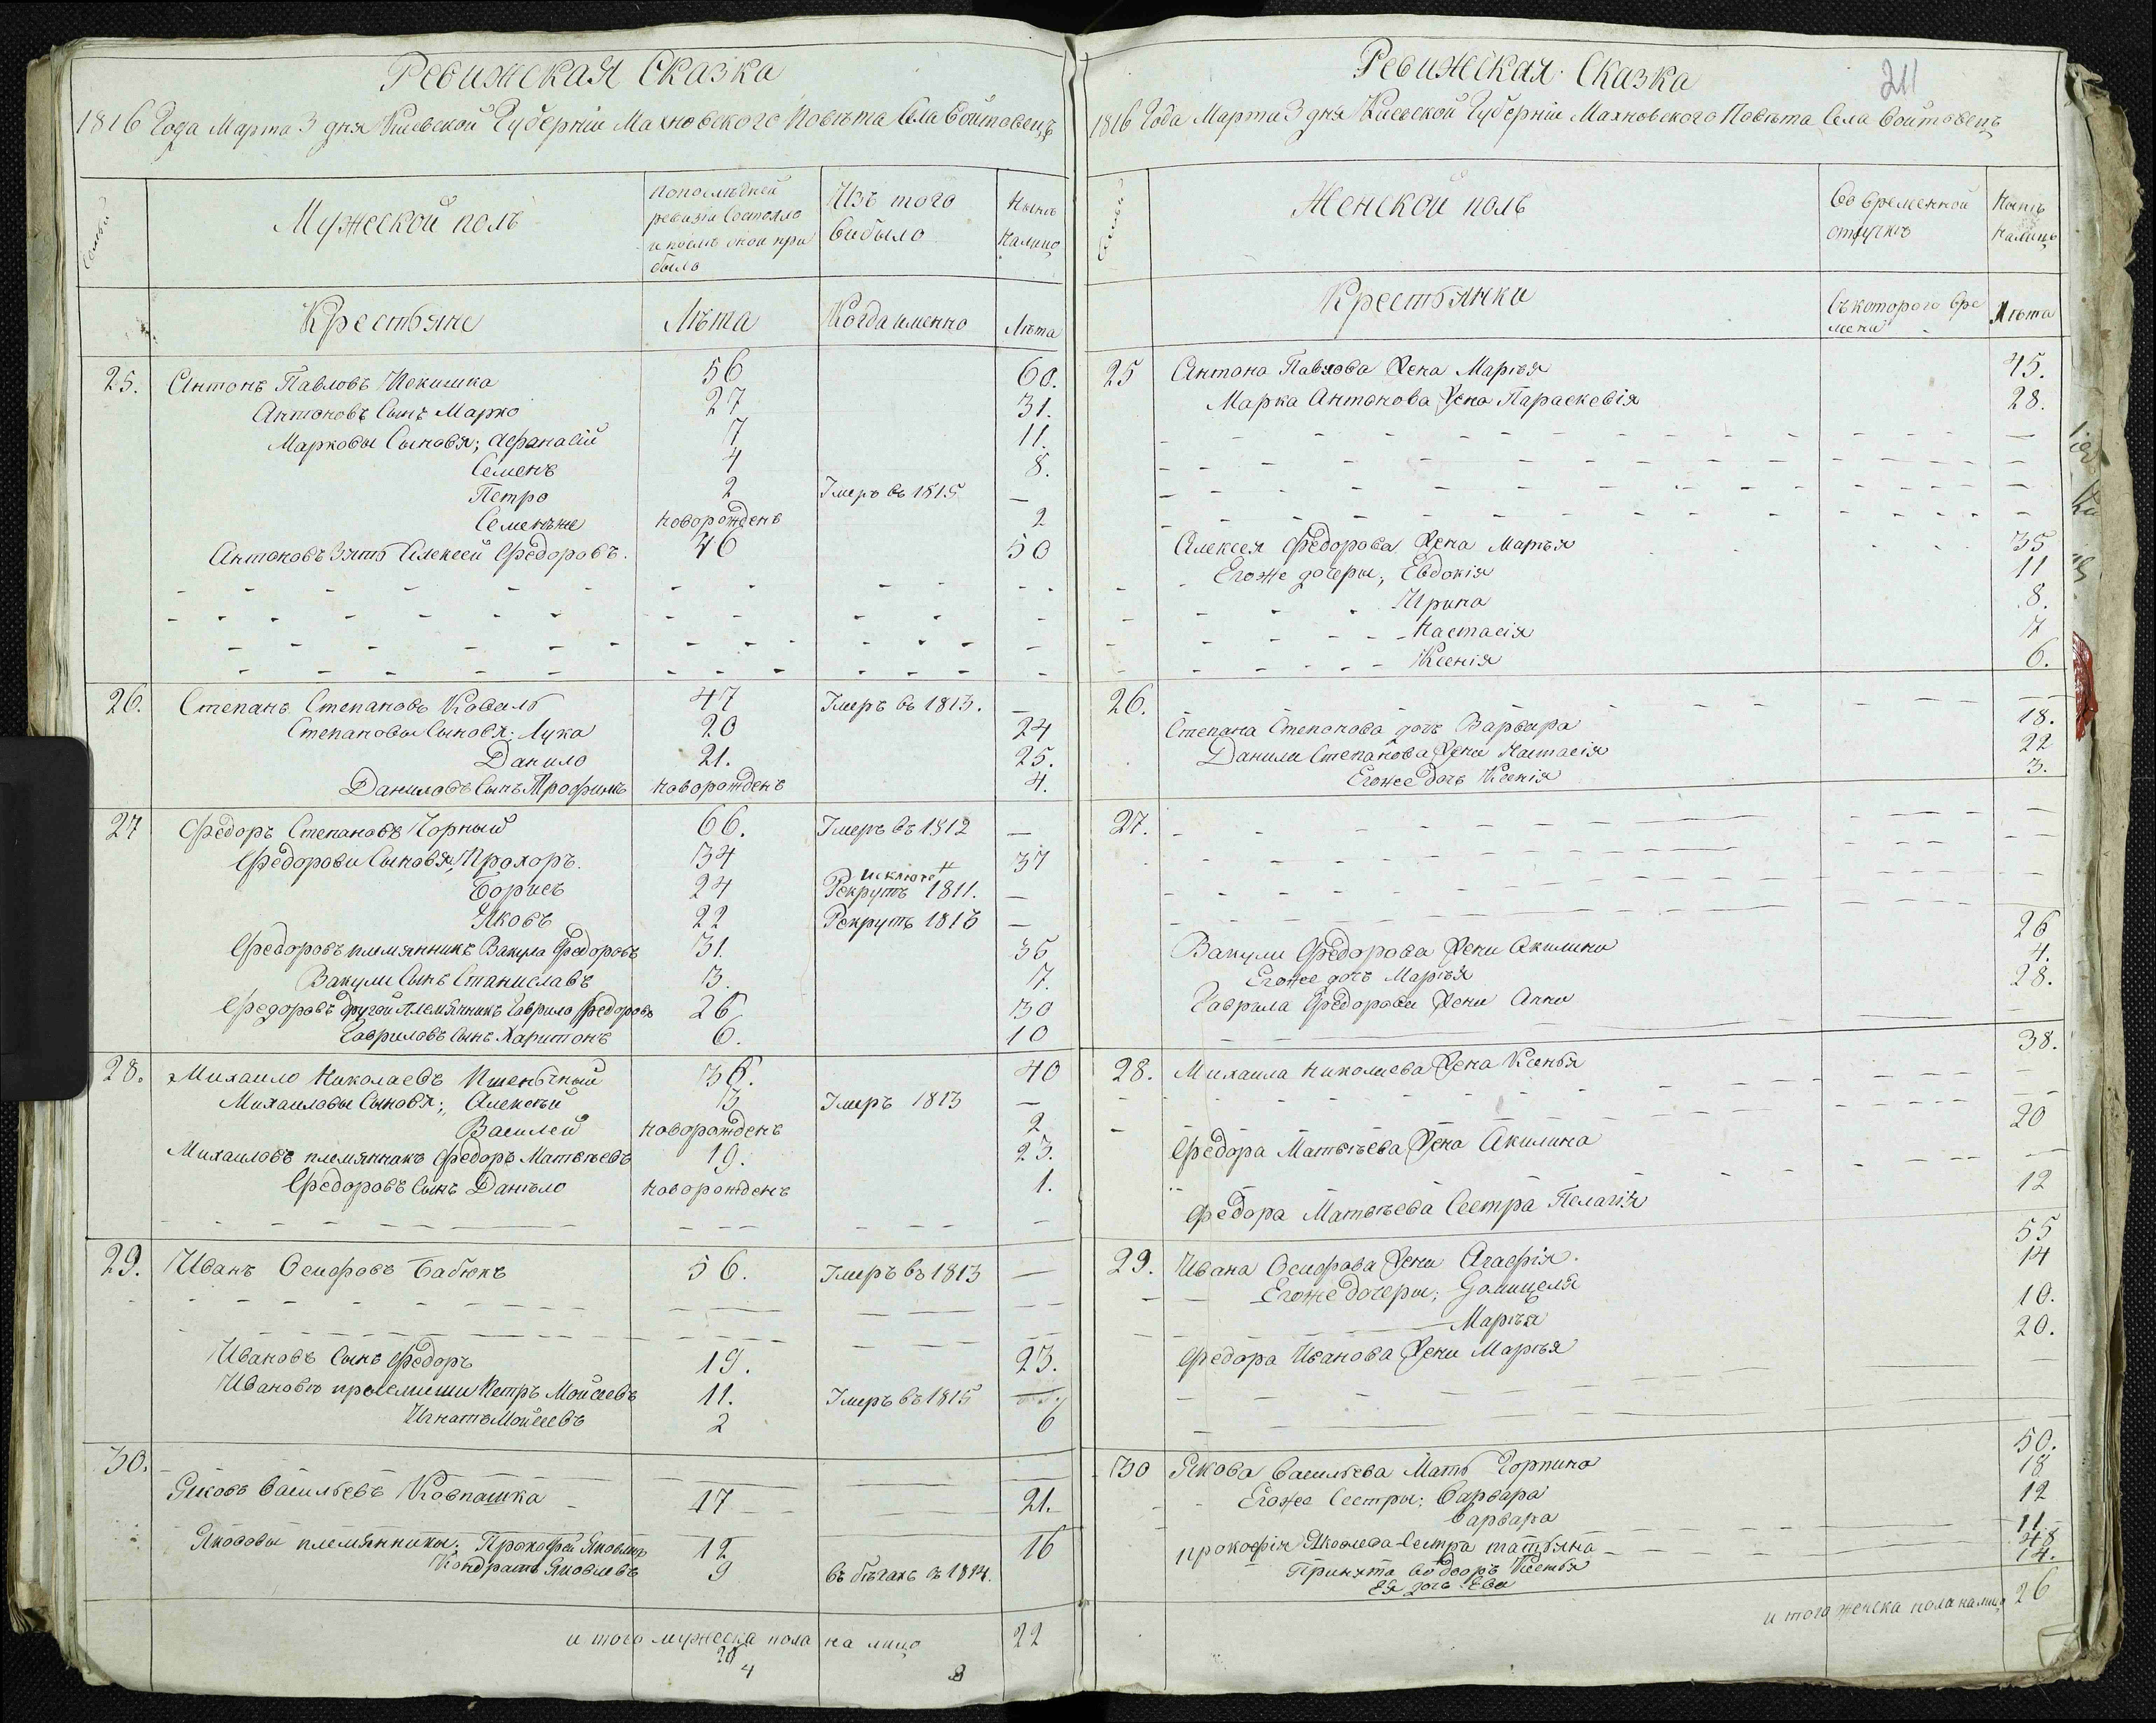 Ревижская Сказка
1816 Года Марта 3 дня Киевской Губерніи Махновского Повѣта Села Войтовецъ
Семьи
Мужеской полъ
По последней ревизіи Состояло и после оной прибыло
Изъ того выбыло
Нынѣ налицо
Крестьяне
Лѣта
Когда именно
Лѣта
25. Антонъ Павловъ 56 60.
Антоновъ Сынъ Марко 27 31.
Марковы Сыновя; Афанасій 7 11.
Семенъ 4 8.
Петро 2 Умеръ въ 1815 —
Семенъже новорожденъ 2
Антоновъ Зять Алексей Федоровъ. 46 50
26. Степанъ Степановъ Коваль 47 Умеръ въ 1813. —
Степановы Сыновя: Лука 20 24
Данило 21. 25.
Даниловъ Сынъ Трофимъ новорожденъ 4.
27 Федоръ Степановъ Чорный 66. Умеръ въ 1812 —
Федорови Сыновя, Прохоръ. 34 37
Борисъ 24 Рекрутъ 1811. —
Яковъ 22 Рекрутъ 1813 —
Федоровъ племянникъ Вакула Федоровъ 31. 35
Вакули Сынъ Станиславъ 3. 7.
Федоровъ другой племянникъ Гаврило Федоровъ 26 30
Гавриловъ Сынъ Харитонъ 6. 10
28. Михаило Николаевъ Пшеничный 36. 40
Михаиловы Сыновя; Алексѣй 3 Умеръ 1813 —
Василей новорожденъ 2
Михаиловъ племянникъ Федоръ Матвѣевъ 19. 23.
Федоровъ Сынъ Данъло новорожденъ 1.
29. Иванъ Осифовъ Бабюкъ 56. Умеръ въ 1813 —
Ивановъ Сынъ Федоръ 19. 23.
Ивановы Петръ Мойсеевъ 11. Умеръ въ 1815 —
Игнатъ Мойсеевъ 2 6
30.
Яковъ Васильевъ Ковпашка 17 21.
Яковова племянники: Прокофей Яковлевъ 12 16
Кондратъ Яковлевъ 9 въ бѣгахъ съ 1814.
и того мужеска пола на лицо 22
20
4 8
Ревижская Сказка
211
1816 Года Марта 3 дня Киевской Губерніи Махновского Повѣта Села Войтовецъ
Семьи
Женской полъ
Во временной отлучкѣ
Нынѣ налицо
Крестьянки
Съ которого времени
Лѣта
25 Антона Павлова Жена Маріѣя 45.
Марка Антонова Жена Параскевія 28.
Алексея Федорова Жена Маріѣя 35
Егоже дочеры, Евдокія 11
Ирина 8.
Настасія 7
Ксенія 6.
26.
Степана Степанова дочъ Варвара 18.
Данили Степанова Жена Настасія 22
Егоже дочъ Ксенія 3.
27.
Вакули Федорова Жена Акилина 26
Егоже дочъ Маріѣя 4.
Гаврила Федорова Жена Анна 28.
28. Михаила Николаева Жена Ксенья 38.
Федора Матвѣева Жена Акилина 20
Федора Матвѣева Сестра Пелагія 12
29. Ивана Осифова Жена Агафія. 55
Егоже дочеры; Домицеля 14
Маріѣя 10.
Федора Иванова Жена Маріѣя 20.
30 Якова Васильева Мать Горпина 50.
Егоже Сестры: Варвара 18
Варвара 12
Прокофія Яковлева Сестра Татьяна 11.
Принята во дворъ Ксенья 48
Ея дочъ Ева 14.
и того женска пола налицо 26